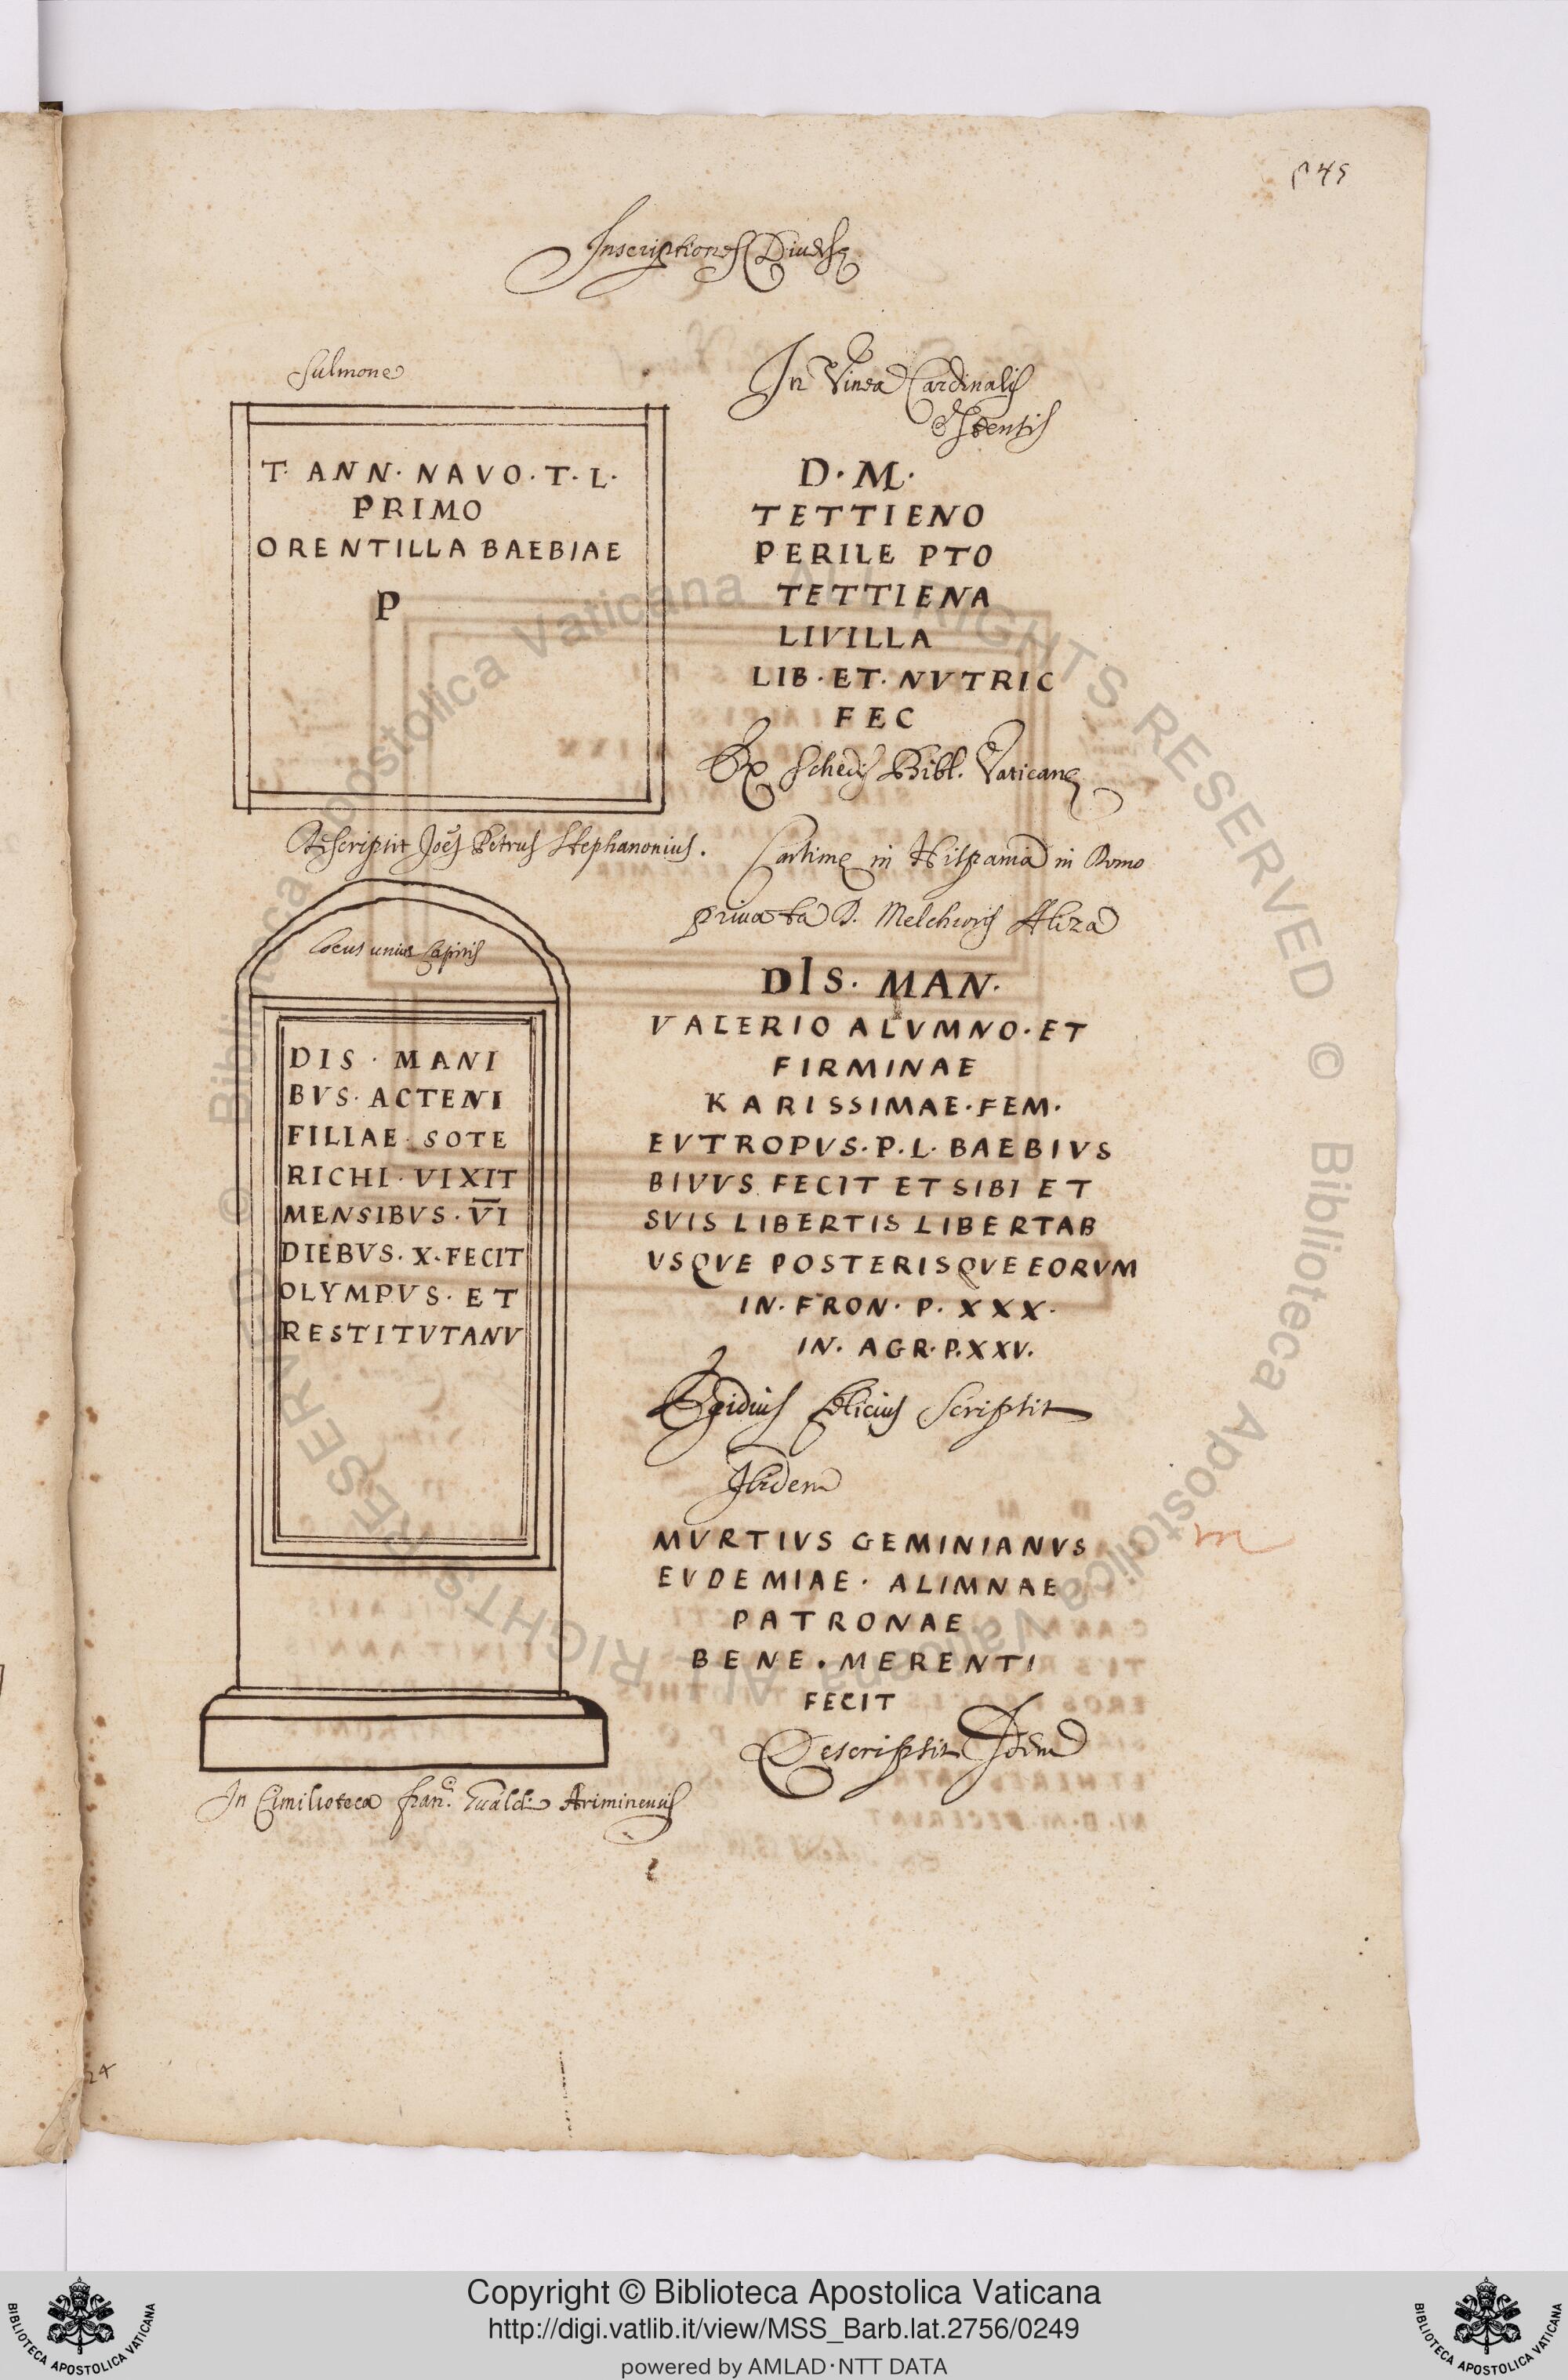 Inscriptiones Diversę
Sulmone
T. ANN. NAVO. T. L.
PRIMO
ORENTILLA BAEBIAE
P
Descripsit Joẽs Petrus Stephanonius.
Locus unius Capitis
DIS · MANI
BVS · ACTENI
FILIAE · SOTE
RICHI · VIXIT
MENSIBVS · VI
DIEBVS. X. FECIT
OLYMPVS · ET
RESTITVTANV
In Cimilioteca fran.ci Gualdi Ariminensis
In Vinea Cardinalis
Estensis
D · M ·
TETTIENO
PERILE PTO
TETTIENA
LIVILLA
LIB · ET · NVTRIC
FEC
Ex schedis Bibl. Vaticanę
Cartimę in Hispania in Domo
privata D. Melchioris Aliza
DIS. MAN.
VALERIO ALVMNO · ET
FIRMINAE
KARISSIMAE · FEM ·
EVTROPVS · P · L · BAEBIVS
BIVVS FECIT ET SIBI ET
SVIS LIBERTIS LIBERTAB
VSQVE POSTERISQVE EORVM
IN · FRON · P · XXX ·
IN · AGR · P. XXV.
Egidius scripsit
Ibidem
MVRTIVS GEMINIANVS
EVDEMIAE · ALIMNAE
PATRONAE
BENE · MERENTI
FECIT
Descripsit Idem
m
24
© Biblioteca Apostolica Vaticana ALL RIGHTS RESERVED © Biblioteca Apostolica Vaticana ALL RIGHTS RESERVED
Copyright © Biblioteca Apostolica Vaticana
http://digi.vatlib.it/view/MSS_Barb.lat.2756/0249
powered by AMLAD · NTT DATA
BIBLIOTECA APOSTOLICA VATICANA
BIBLIOTECA APOSTOLICA VATICANA